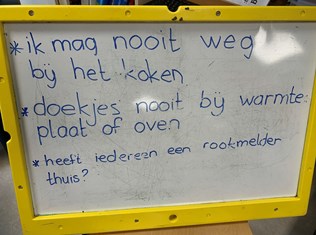 *ik mag nooit weg
bij het koken
*doekjes nooit bij warmte-
plaat of oven
*heeft iedereen een rookmelder
thuis?